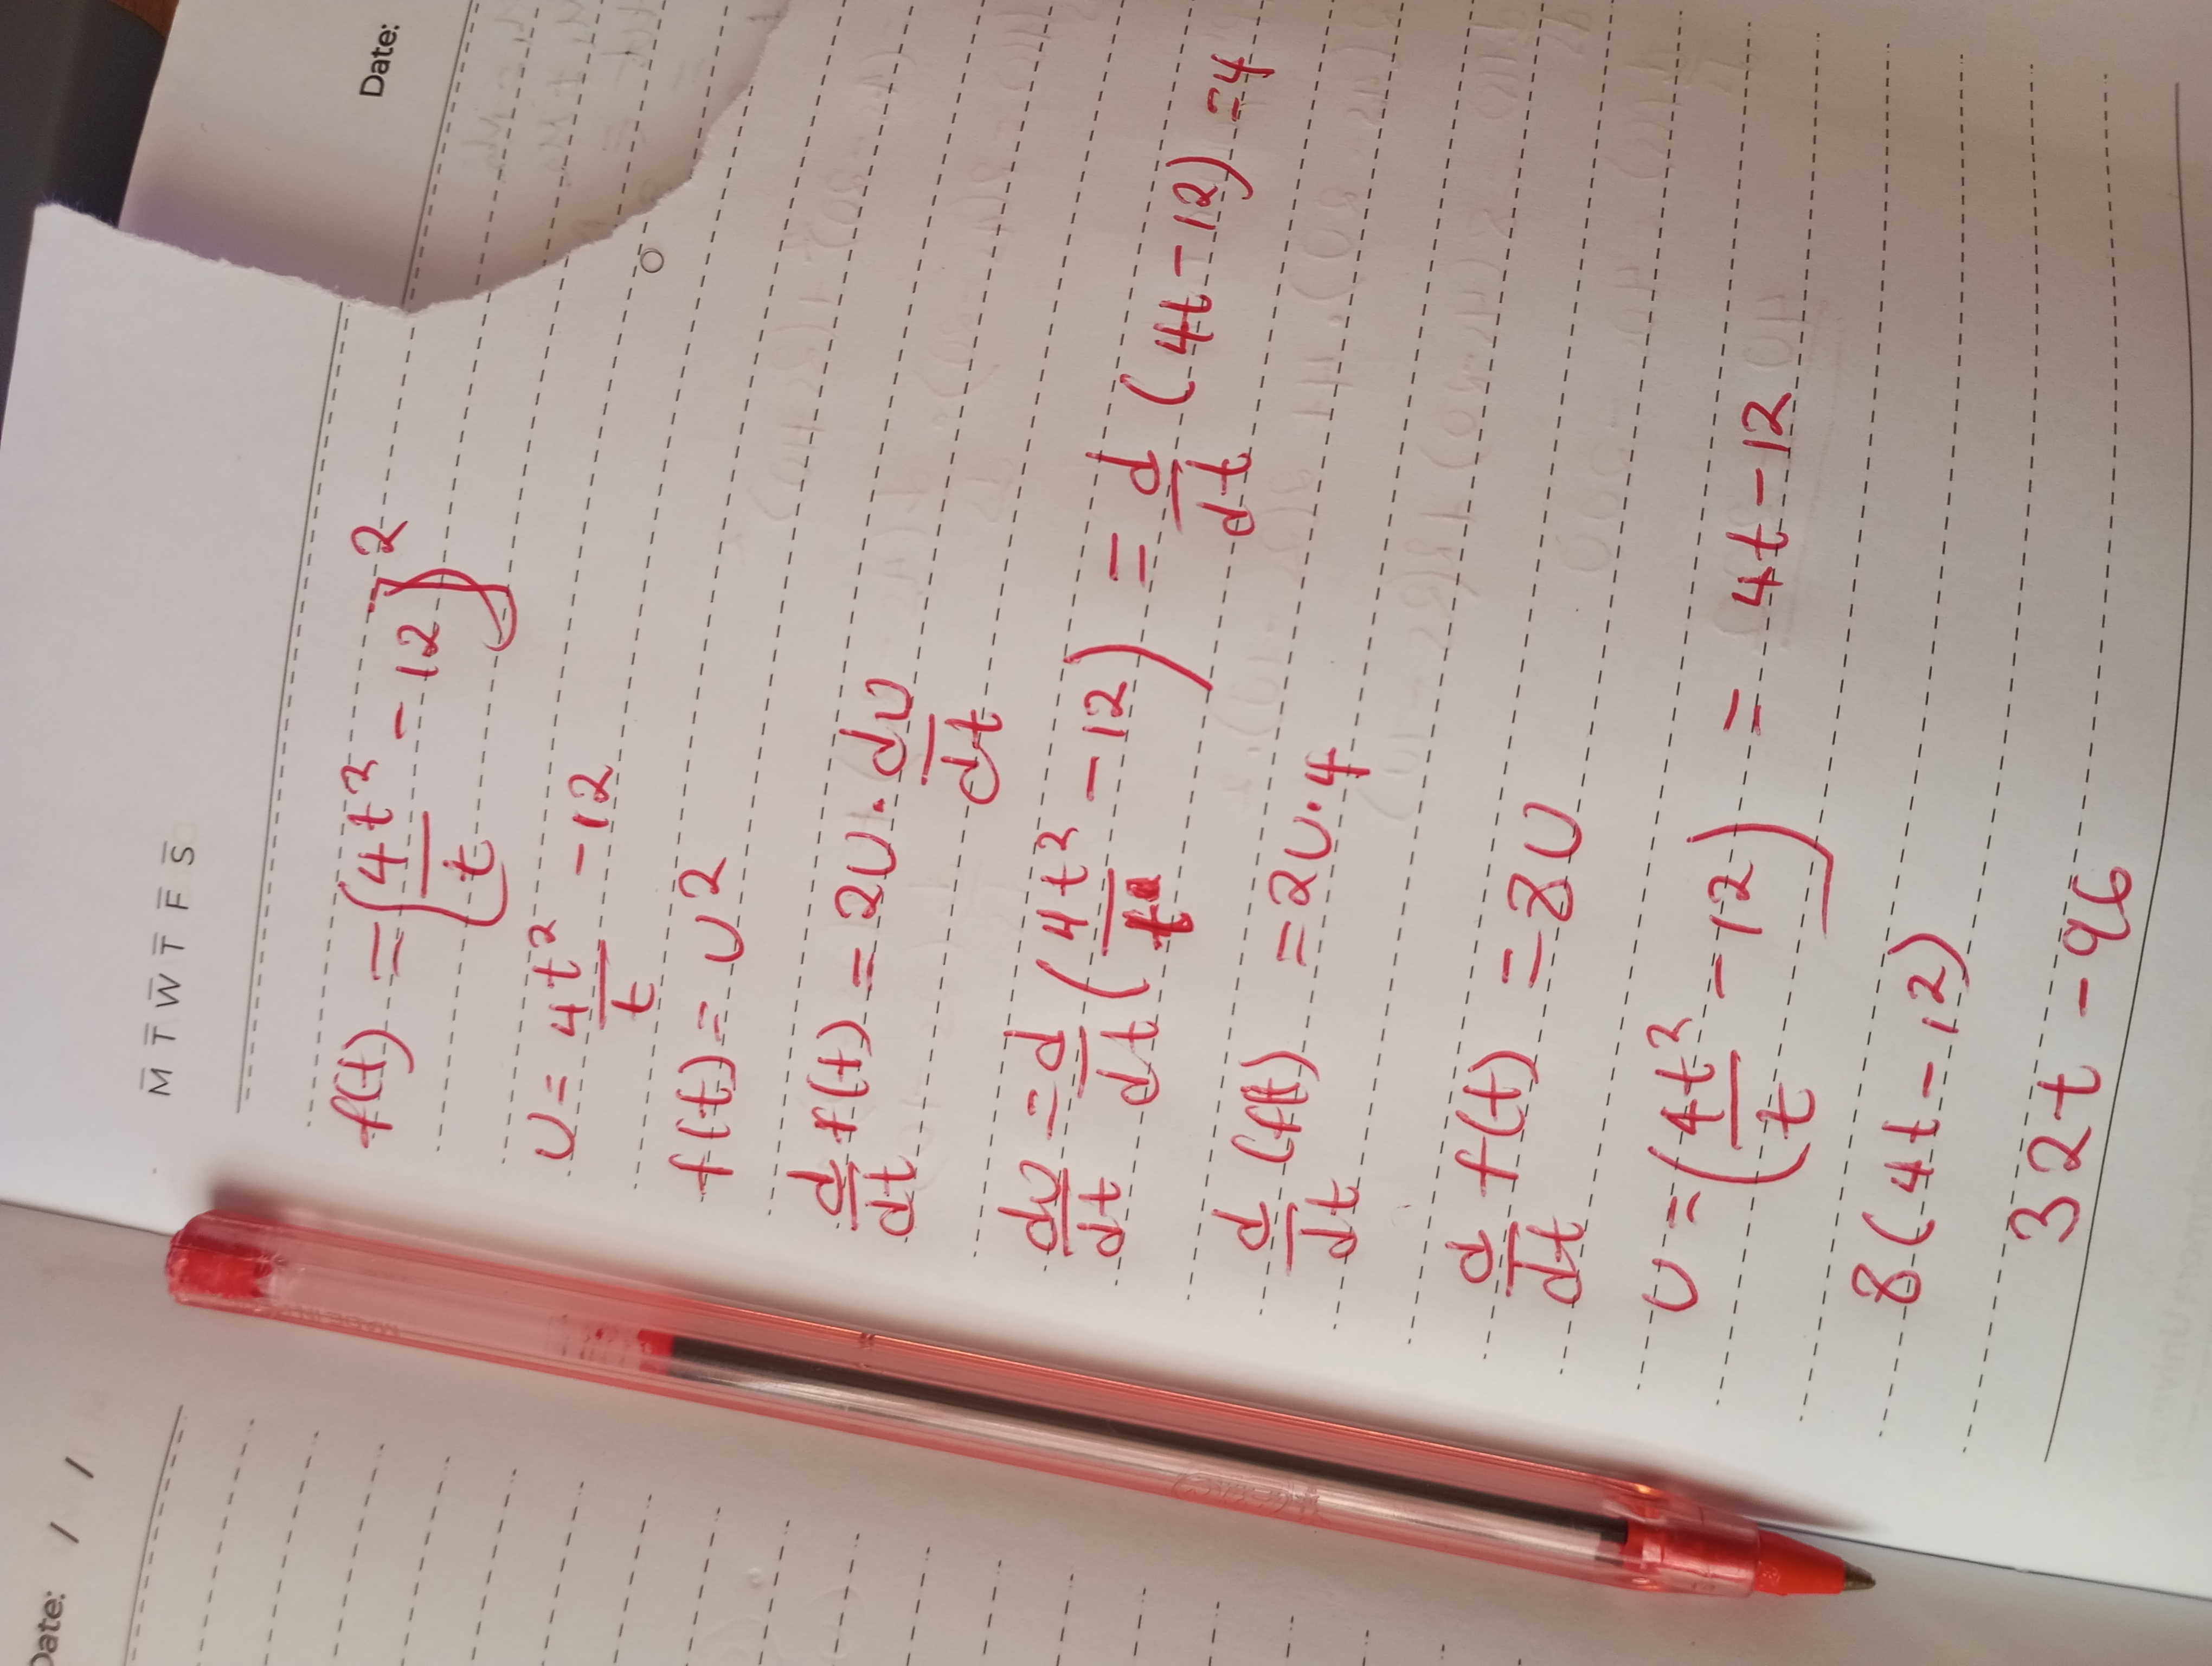 M T W T F S S
Date:
f(t) = (4t²/t - 12)²
U = 4t²/t - 12
f(t) = U²
d/dt f(t) = 2U · dU/dt
dU/dt = d/dt (4t²/t - 12) = d/dt (4t - 12) = 4
d/dt (f(t) = 2U · 4
d/dt f(t) = 8U
U = (4t²/t - 12) = 4t - 12
8(4t - 12)
32t - 96
Date: / /